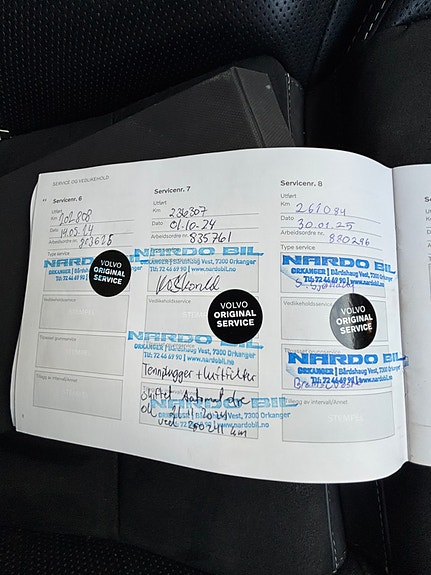 SERVICE OG VEDLIKEHOLD
Servicenr. 6
Utført
Km
Dato 14.05.24
Arbeidsordre nr.
Type service
NARDO BIL
ORKANGER | Bårdshaug Vest, 7300 Orkanger
Tlf: 72 46 69 90 | www.nardobil.no
VOLVO
ORIGINAL
SERVICE
Vedlikeholdsservice
Servicenr. 7
Utført
Km 236307
Dato 01.10-24
Arbeidsordre nr. 835761
NARDO BIL
ORKANGER | Bårdshaug Vest, 7300 Orkanger
Tlf: 72 46 69 90 | www.nardobil.no
VOLVO
ORIGINAL
SERVICE
NARDO BIL
ORKANGER | Bårdshaug Vest, 7300 Orkanger
Tlf: 72 46 69 90 | www.nardobil.no
Tennplugger + luftfilter
NARDO BIL
Skiftet Automatgire
Vest, 7300 Orkanger
www.nardobil.no
km
Servicenr. 8
Utført
Km 261084
Dato 30.01.25
Arbeidsordre nr. 880296
Type service
NARDO BIL
ORKANGER | Bårdshaug Vest, 7300 Orkanger
Tlf: 72 46 69 90 | www.nardobil.no
Vedlikeholdsservice
VOLVO
ORIGINAL
SERVICE
NARDO BIL
ORKANGER | Bårdshaug Vest, 7300 Orkanger
Tlf: 72 46 69 90 | www.nardobil.no
Tillegg av intervall/Annet
STEMPEL